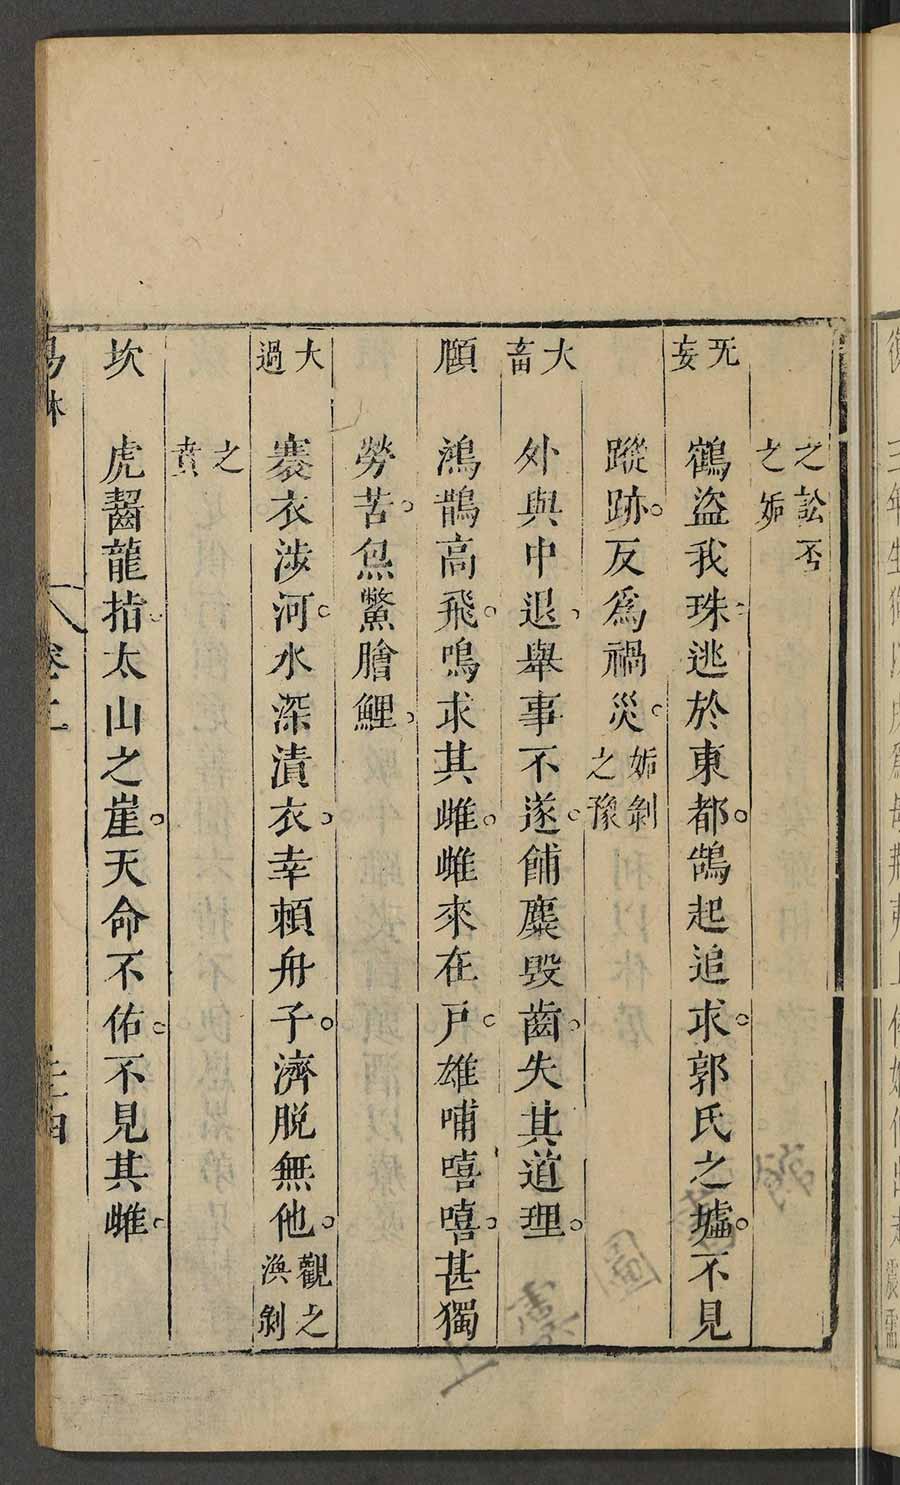 之訟否
之姤
无妄 鶴盜我珠逃於東都鵠起追求郭氏之墟不見
蹤跡反爲禍災 姤剝之豫
大畜 外與中退舉事不遂餔麋毀齒失其道理
頤 鴻鵲高飛鳴求其雌雌來在戶雄哺嘻嘻甚獨
勞苦炰鱉膾鯉
大過 褰衣涉河水深漬衣幸賴舟子濟脫無他 觀之渙剝
之賁
坎 虎齧龍指太山之崖天命不佑不見其雌
易林 卷二